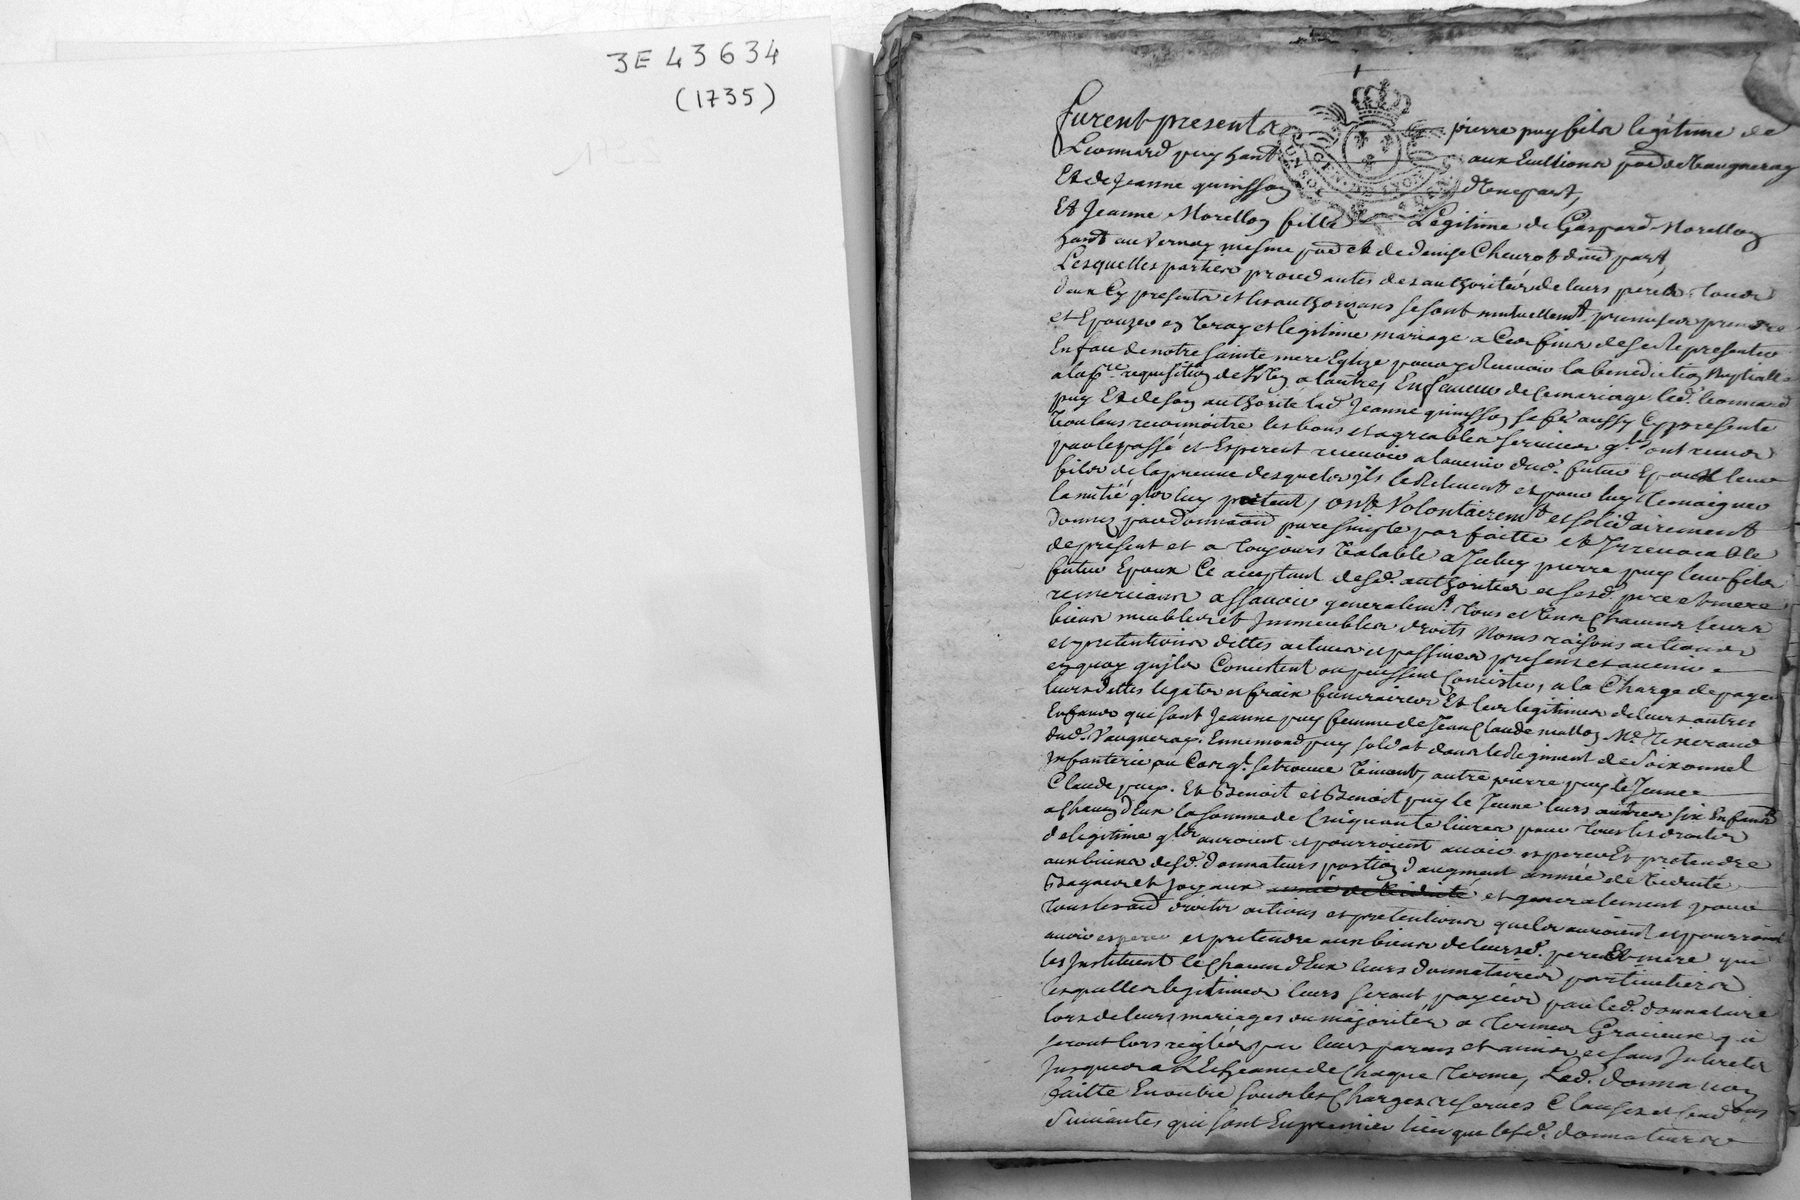 3E 43634
(1735)
furent presents pierre puy fils legitime de
Leonnard puy hant aux Cullions pad de Vaugneray
Et de Jeanne quinsson d'une part,
Et Jeanne Morellon fille Legitime de Gaspard Morellon
UN SOL GEN. DE LYON
hant au Vernay mesme pad et de denise Cheurot d'aud part,
Lesquelles parties procedantes des authorités de leurs peres tous
deux Cy presents et les authorisans se sont mutuellemt promis se prendre
et Epouzer en vray et legitime mariage a Ces fins de se Representer
En face de notre sainte mere Eglize pour y Recevoir la benediction Nuptialle
a la pre requisition de l'un a l'autre, En faveur de ce mariage led. leonnard
puy Et de son authorité lad. Jeanne quinsson sa fe aussy Cy presente
voulans reconnoitre les bons et agreables services qls ont receus
par le passé et Esperent recevoir a lavenir dud. futur Epoux leur
fils de la preuve desquels ils le Relevent et pour luy temoigner
lamitié qls luy portent, ont Volontairemt et solidairement
donnez par donnaon pure simple parfaitte et Irrevocable
de present et a toujours valable a Iceluy pierre puy leur fils
futur Epoux Ce acceptant desd. authorités et sesd. pere et mere
remerciant assavoir generalemt tous et uns Chacuns leurs
biens meubles et Immeubles droits Noms raisons actions
et pretentions dettes actives et passives presens et avenir
en quoy qu'ils Consistent ou puissent Consister, a la Charge de payer
leurs dettes legats et fraix funeraires Et les legitimes de leurs autres
Enfans qui sont Jeanne puy femme de Jean Claude mallon Md. Tisserand
dud. Vaugneray, Ennemond puy soldat dans le Regiment de Soixonnel
Infanterie au Cas ql se trouve vivant, autre pierre puy le Jeune
Claude puy. Et Benoit et Benoit puy le Jeune leurs autres six Enfants
a Chacun d'Eux la somme de Cinquante livres pour tous les droits
de legitime qls auroient et pourroient avoir esperer Et pretendre
aux biens desd. donnateurs portion d'augment année de viduité
Bagues et joyaux et generalement pour
tous les aud droits actions et pretentions quels auroient et pourroient
avoir esperer et pretendre aux biens de leursd. pere Et mere qui
les Instituent Ce Chacun d'Eux leurs donnataires particuliers
lesquelles legitimes leurs seront payées par led. donnataire
lors de leurs mariages ou majorités a termes Gracieux qui
seront lors reglés par leurs parens et amis et sans Interets
Jusques a L'Echeance de Chaque terme, Lad. donnation
faitte Enoutre sous les Charges reserves Clauses et condons
Suivantes qui sont En premier lieu que lesd. donnateurs